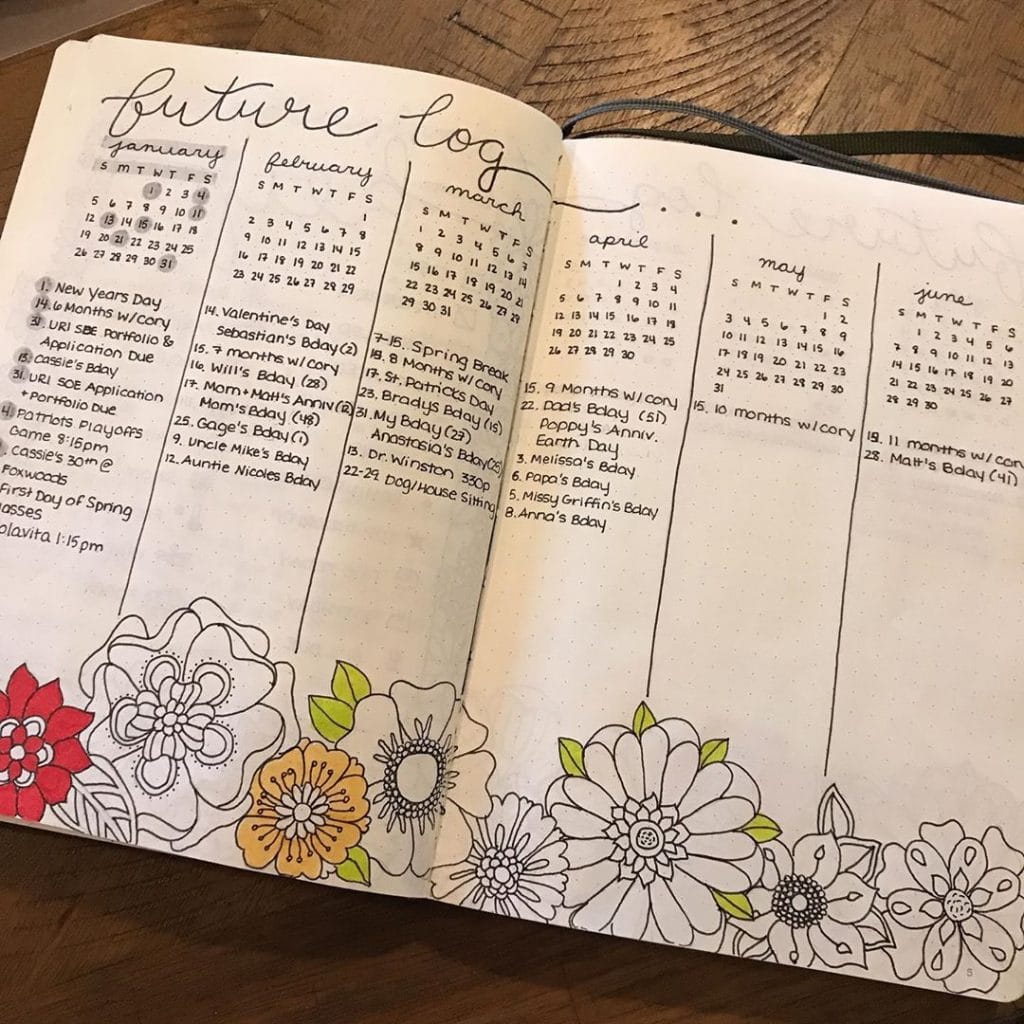 future log
january
S M T W T F S
1 2 3 4
5 6 7 8 9 10 11
12 13 14 15 16 17 18
19 20 21 22 23 24 25
26 27 28 29 30 31
1. New Years Day
14. 6 Months w/Cory
31. URI SBE Portfolio &
Application Due
13. Cassie's Bday
31. URI SOE Application
+ Portfolio Due
4. Patriots Playoffs
Game 8:15pm
Cassie's 30th @
Foxwoods
First Day of Spring
february
S M T W T F S
1
2 3 4 5 6 7 8
9 10 11 12 13 14 15
16 17 18 19 20 21 22
23 24 25 26 27 28 29
14. Valentine's Day
Sebastian's Bday (2)
15. 7 months w/cory
16. Will's Bday (28)
17. Mom + Matt's Anniv (12)
Mom's Bday (48)
25. Gage's Bday (1)
9. Uncle Mike's Bday
12. Auntie Nicoles Bday
march
S M T W T F S
1 2 3 4 5 6 7
8 9 10 11 12 13 14
15 16 17 18 19 20 21
22 23 24 25 26 27 28
29 30 31
7-15. Spring Break
15. 8 Months w/Cory
17. St. Patrick's Day
23. Brady's Bday (15)
31. My Bday (27)
Anastasia's Bday (25)
13. Dr. Winston 330p
22-29 Dog/House Sitting
april
S M T W T F S
1 2 3 4
5 6 7 8 9 10 11
12 13 14 15 16 17 18
19 20 21 22 23 24 25
26 27 28 29 30
15. 9 Months w/Cory
22. Dad's Bday (51)
Poppy's Anniv.
Earth Day
3. Melissa's Bday
6. Papa's Bday
5. Missy Griffin's Bday
8. Anna's Bday
may
S M T W T F S
1 2
3 4 5 6 7 8 9
10 11 12 13 14 15 16
17 18 19 20 21 22 23
24 25 26 27 28 29 30
31
15. 10 months w/cory
june
S M T W T F S
1 2 3 4 5 6
7 8 9 10 11 12 13
14 15 16 17 18 19 20
21 22 23 24 25 26 27
28 29 30
15. 11 months w/cory
28. Matt's Bday (41)
5